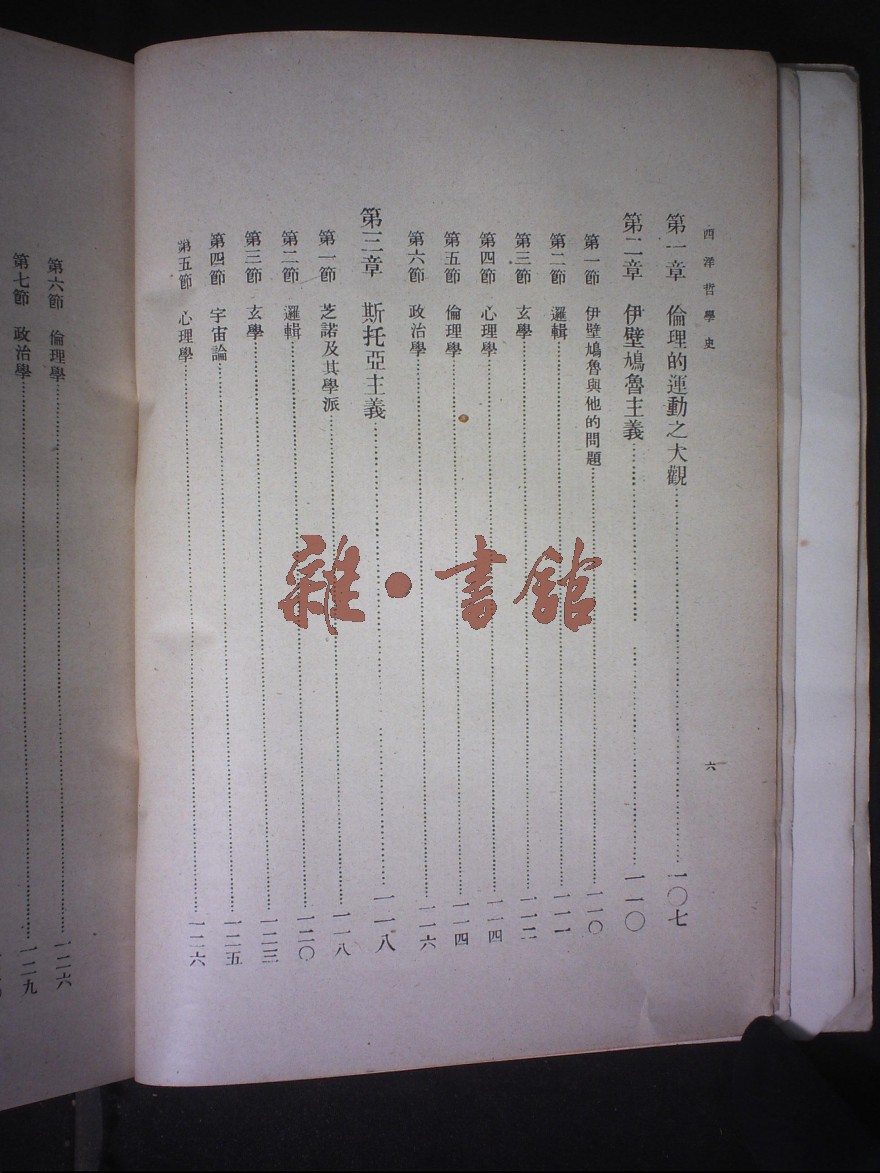 西洋哲學史
六
第一章 倫理的運動之大觀 一〇七
第二章 伊壁鳩魯主義 一一〇
第一節 伊壁鳩魯與他的問題 一一〇
第二節 邏輯 一一一
第三節 玄學 一一二
第四節 心理學 一一四
第五節 倫理學 一一四
第六節 政治學 一一六
第三章 斯托亞主義 一一八
第一節 芝諾及其學派 一一八
第二節 邏輯 一二〇
第三節 玄學 一二三
第四節 宇宙論 一二五
第五節 心理學 一二六
第六節 倫理學 一二六
第七節 政治學 一二九
雜·書館